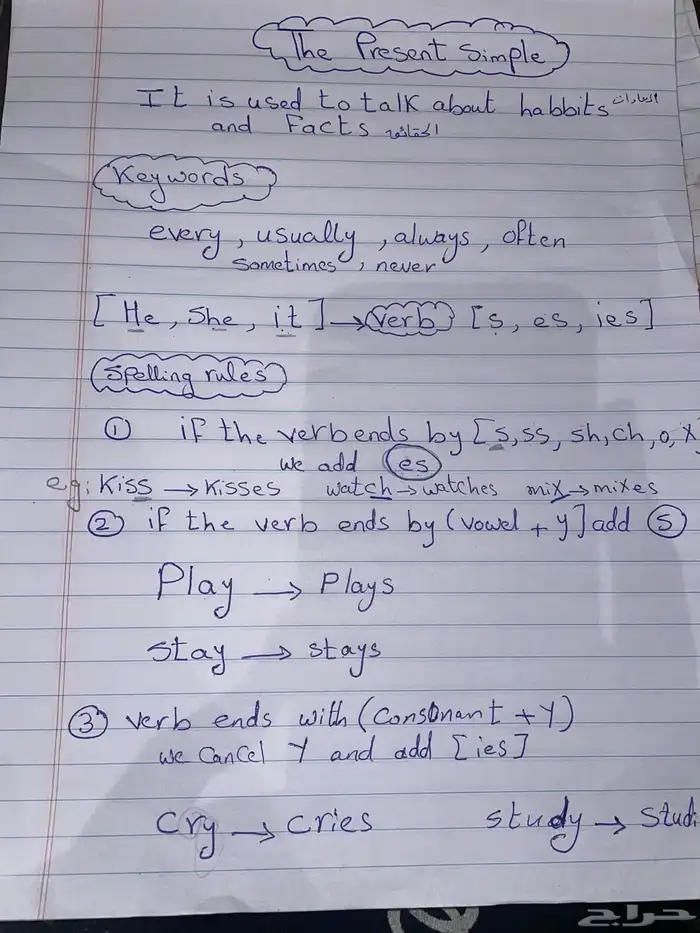 The Present Simple
It is used to talk about habbits العادات
and Facts الحقائق
Keywords
every, usually, always, often
sometimes, never
[He, She, it] → verb [s, es, ies]
Spelling rules
① if the verb ends by [s, ss, sh, ch, o, x
we add es
eg: Kiss → Kisses watch → watches mix → mixes
② if the verb ends by (vowel + y] add Ⓢ
Play → Plays
stay → stays
③ verb ends with (Consonant + Y)
we Cancel Y and add [ies]
Cry → Cries study → studi
حراج